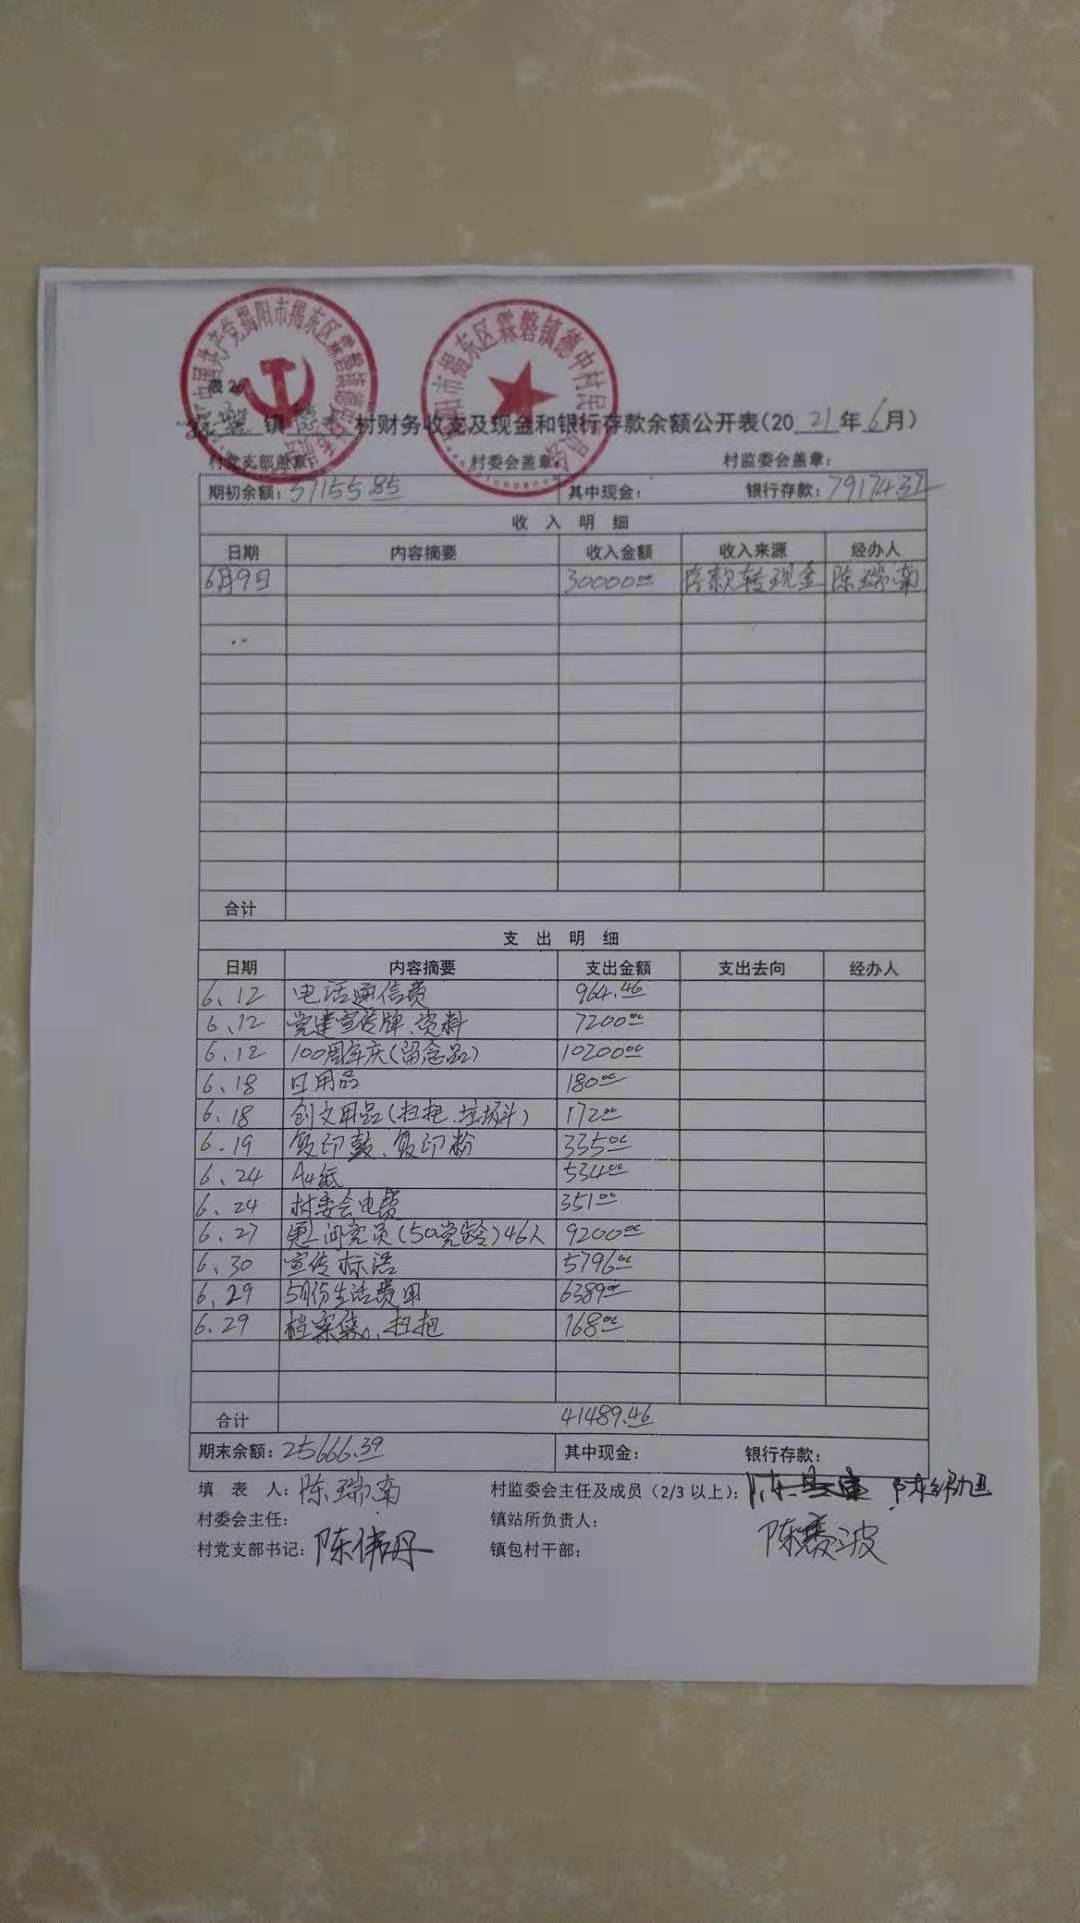 中国共产党揭阳市揭东区霖磐镇德中村
揭阳市揭东区霖磐镇德中村民委员会
表2
霖磐镇德中村财务收支及现金和银行存款余额公开表(2021年6月)
村党支部盖章: 村委会盖章: 村监委会盖章:
期初余额:37155.85 其中现金: 银行存款:79174.37
收入明细
日期 内容摘要 收入金额 收入来源 经办人
6月9日 30000.00 存款转现金 陈瑞南
合计
支出明细
日期 内容摘要 支出金额 支出去向 经办人
6.12 电话通信费 964.46
6.12 党建宣传牌、资料 7200.00
6.12 100周年庆(留念品) 10200.00
6.18 日用品 180.00
6.18 创文用品(扫把、垃圾斗) 172.00
6.19 复印鼓、复印粉 335.00
6.24 A4纸 534.00
6.24 村委会电费 351.00
6.27 慰问党员(50党龄)46人 9200.00
6.30 宣传标语 5796.00
6.29 5月份生活费用 6389.00
6.29 档案袋、扫把 168.00
合计 41489.46
期末余额:25666.39 其中现金: 银行存款:
填表人:陈瑞南 村监委会主任及成员(2/3以上):
村委会主任: 镇站所负责人: 陈赛波
村党支部书记:陈伟丹 镇包村干部: